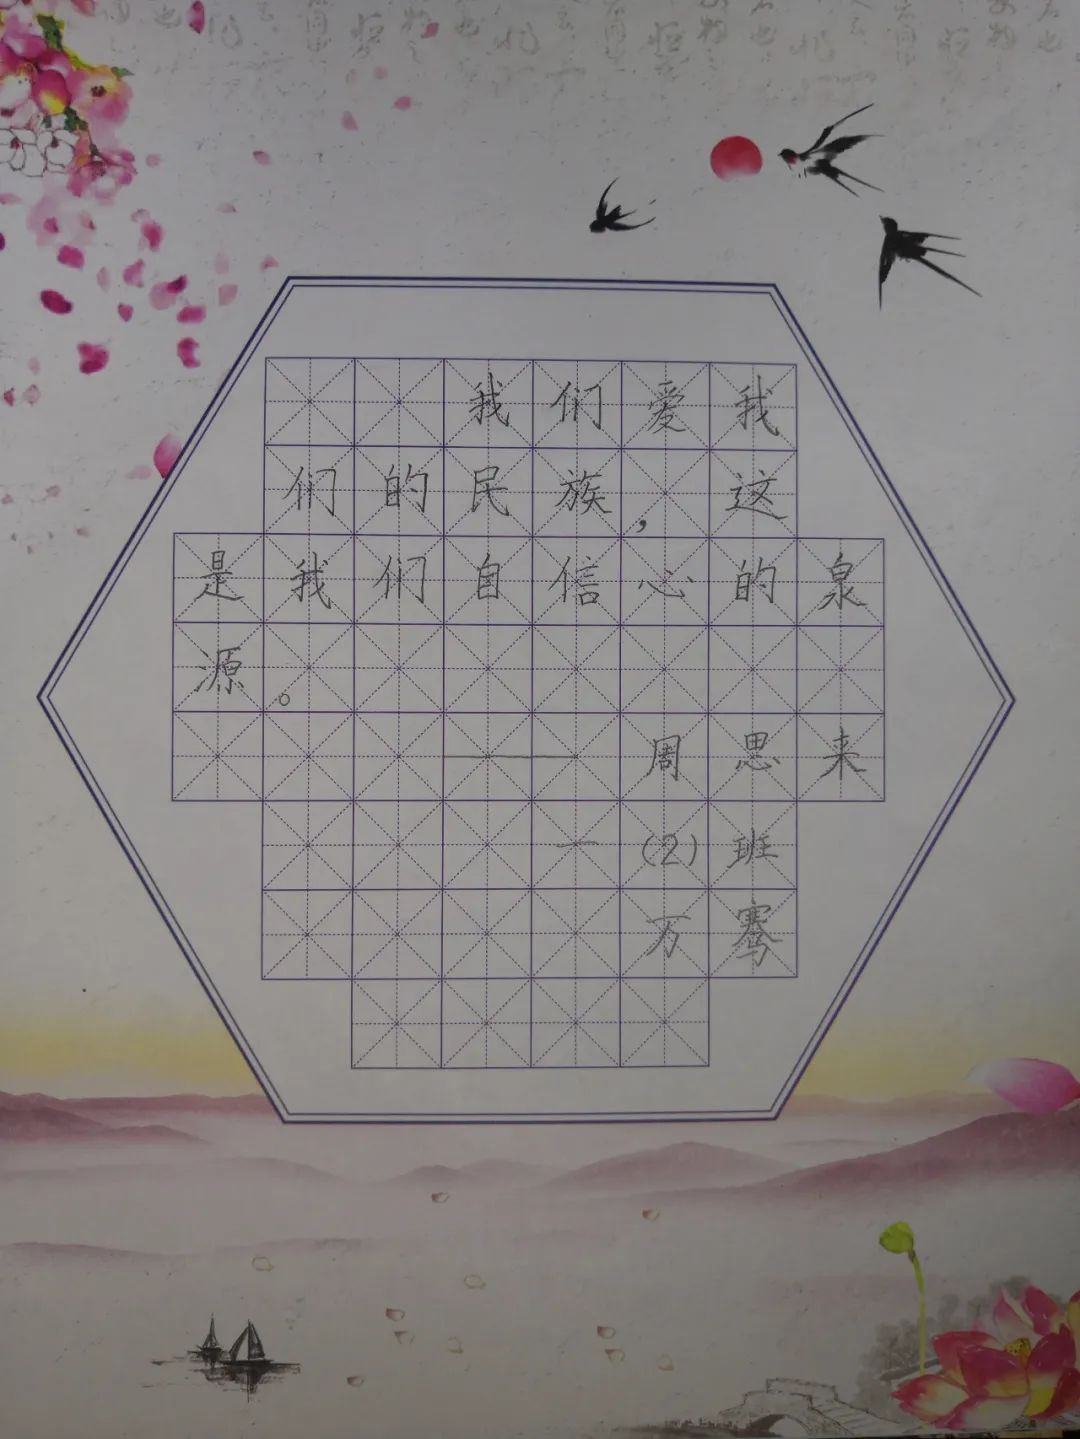 我们爱我
们的民族，这
是我们自信心的泉
源。
——周思来
一(2)班
万骞